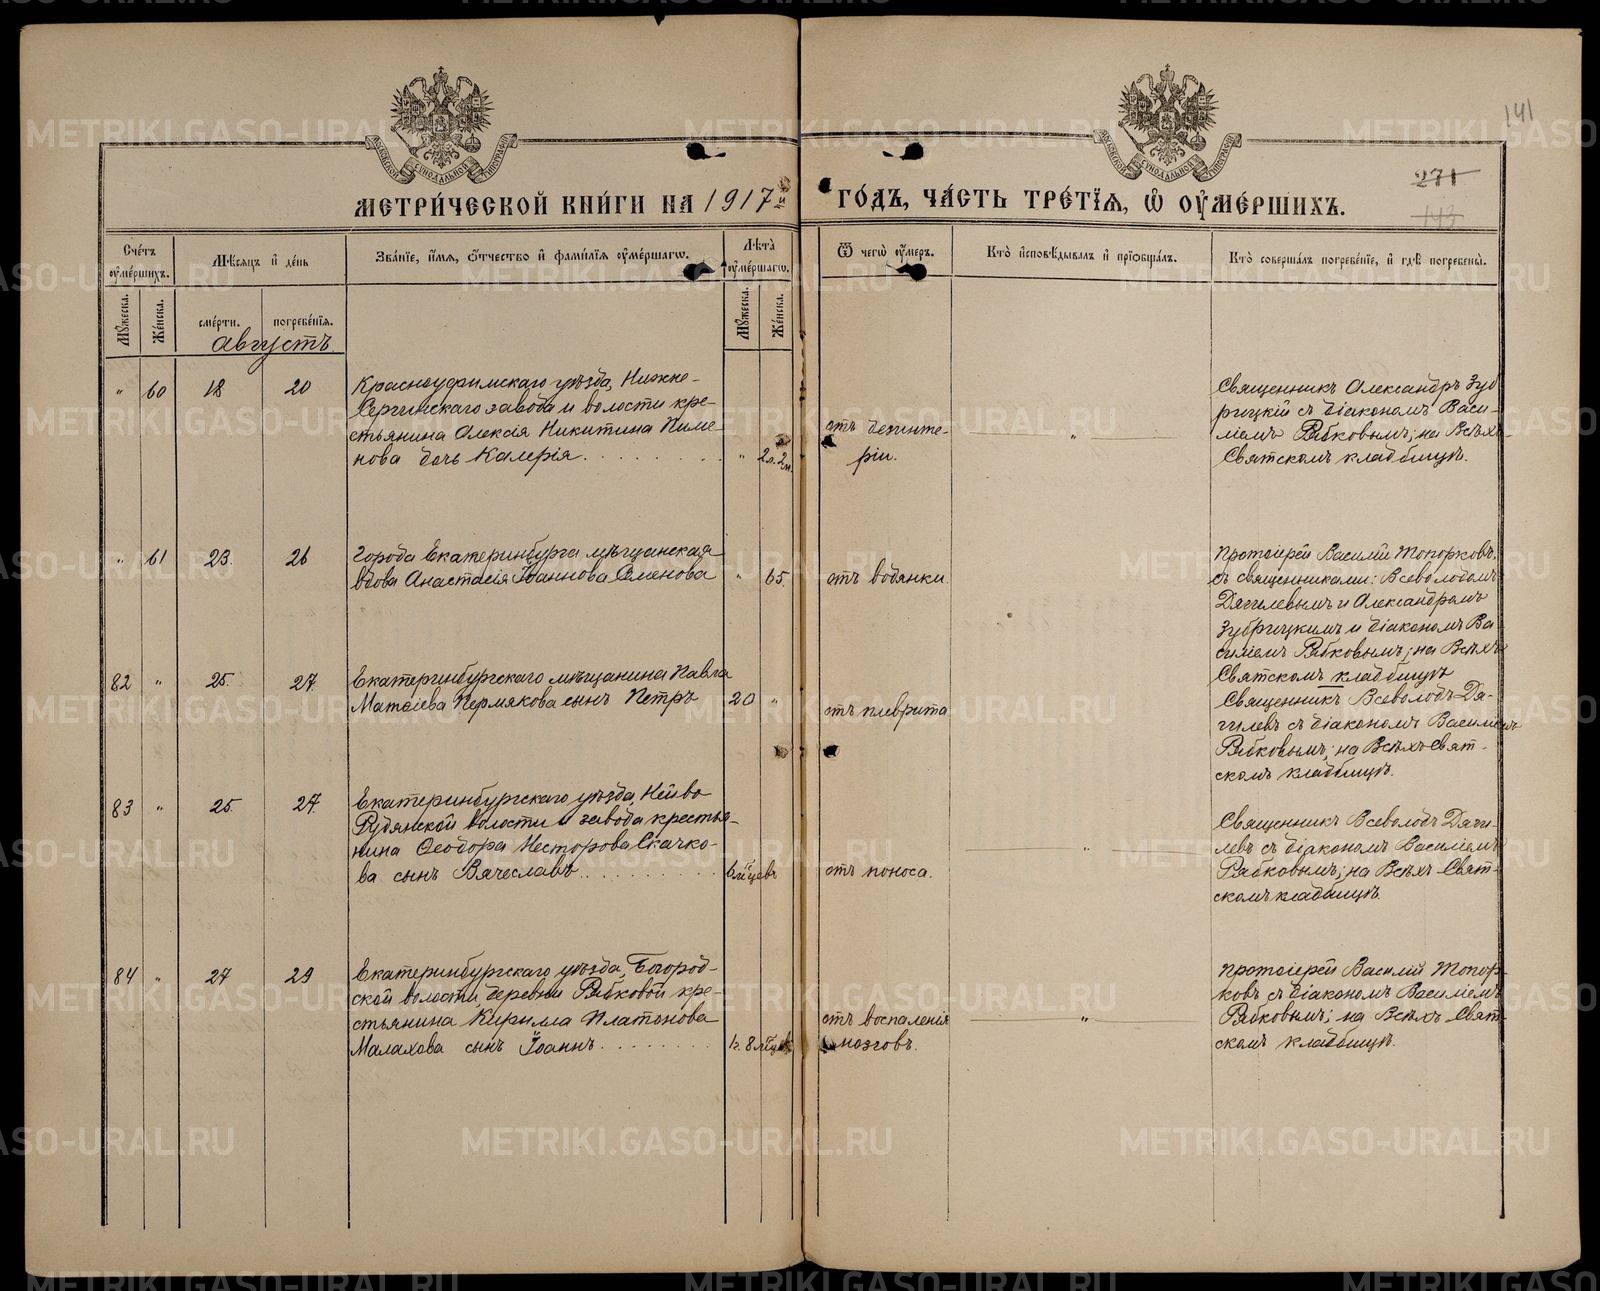 141
271
143
МЕТРИ́ЧЕСКОЙ КНИ́ГИ НА 1917
ГО́ДЪ, ЧА́СТЬ ТРЕ́ТЇѦ, Ѡ҆ ОУ҆МЕ́РШИХЪ.
Сче́тъ оу҆ме́ршихъ.
Мѣ́сѧцъ и҆ де́нь
Зва́нїе, и҆́мѧ, ѻ҆́тчество и҆ фами́лїѧ оу҆ме́ршагѡ.
Лѣ́та оу҆ме́ршагѡ.
Ѿ чегѡ̀ оу҆́меръ.
Кто̀ и҆сповѣ́дывалъ и҆ прїѡбща́лъ.
Кто̀ соверша́лъ погребе́нїе, и҆ гдѣ̀ погребены̀.
Мꙋ́жеска.
Же́нска.
сме́рти.
погребе́нїѧ.
Мꙋ́жеска.
Же́нска.
августъ.
" 60 18 20
Красноуфимскаго уѣзда, Нижне-
Сергинскаго завода и волости кре-
стьянина Алексія Никитина Пиме-
нова дочь Калерія. . . . . . . . .
" 2л. 2м.
отъ дезинте-
ріи.
"
Священникъ Александръ Зуб
рицкій съ діакономъ Васи-
ліемъ Рябковымъ; на Всѣхъ-
Святскомъ кладбищѣ.
" 61 23. 26
Города Екатеринбурга мѣщанская
вдова Анастасія Іоаннова Семенова
" 65
отъ водянки.
Протоіерей Василій Топорковъ.
съ священниками: Всеволодомъ
Дягилевымъ и Александромъ
Зубрицкимъ и діакономъ Ва
силіемъ Рябковымъ; на Всѣхъ
Святскомъ кладбищѣ
82 " 25. 27.
Екатеринбургскаго мѣщанина Павла
Матѳіева Пермякова сынъ Петръ
20 "
отъ плеврита
Священникъ Всеволодъ Дя-
гилевъ съ діакономъ Василіемъ
Рябковымъ; на Всѣхъ Свят-
скомъ кладбищѣ.
83 " 25. 27.
Екатеринбургскаго уѣзда, Нейво
Рудянской волости и завода крестья-
нина Ѳеодора Несторова Скачко-
ва сынъ Вячеславъ. . . . . . . . .
6 мѣсцевъ
отъ поноса.
"
Священникъ Всеволодъ Дяги-
левъ съ діакономъ Василіемъ
Рябковымъ; на Всѣхъ Свят-
скомъ кладбищѣ.
84 " 27 29
Екатеринбургскаго уѣзда, Богород-
ской волости, деревни Рябковой кре-
стьянина Кирилла Платонова
Малахова сынъ Іоаннъ. . . . . . . .
1г. 8 мѣсцевъ
отъ воспаленія
мозговъ.
"
Протоіерей Василій Топор-
ковъ съ діакономъ Василіемъ
Рябковымъ; на Всѣхъ Свят
скомъ кладбищѣ.
METRIKI.GASO-URAL.RU